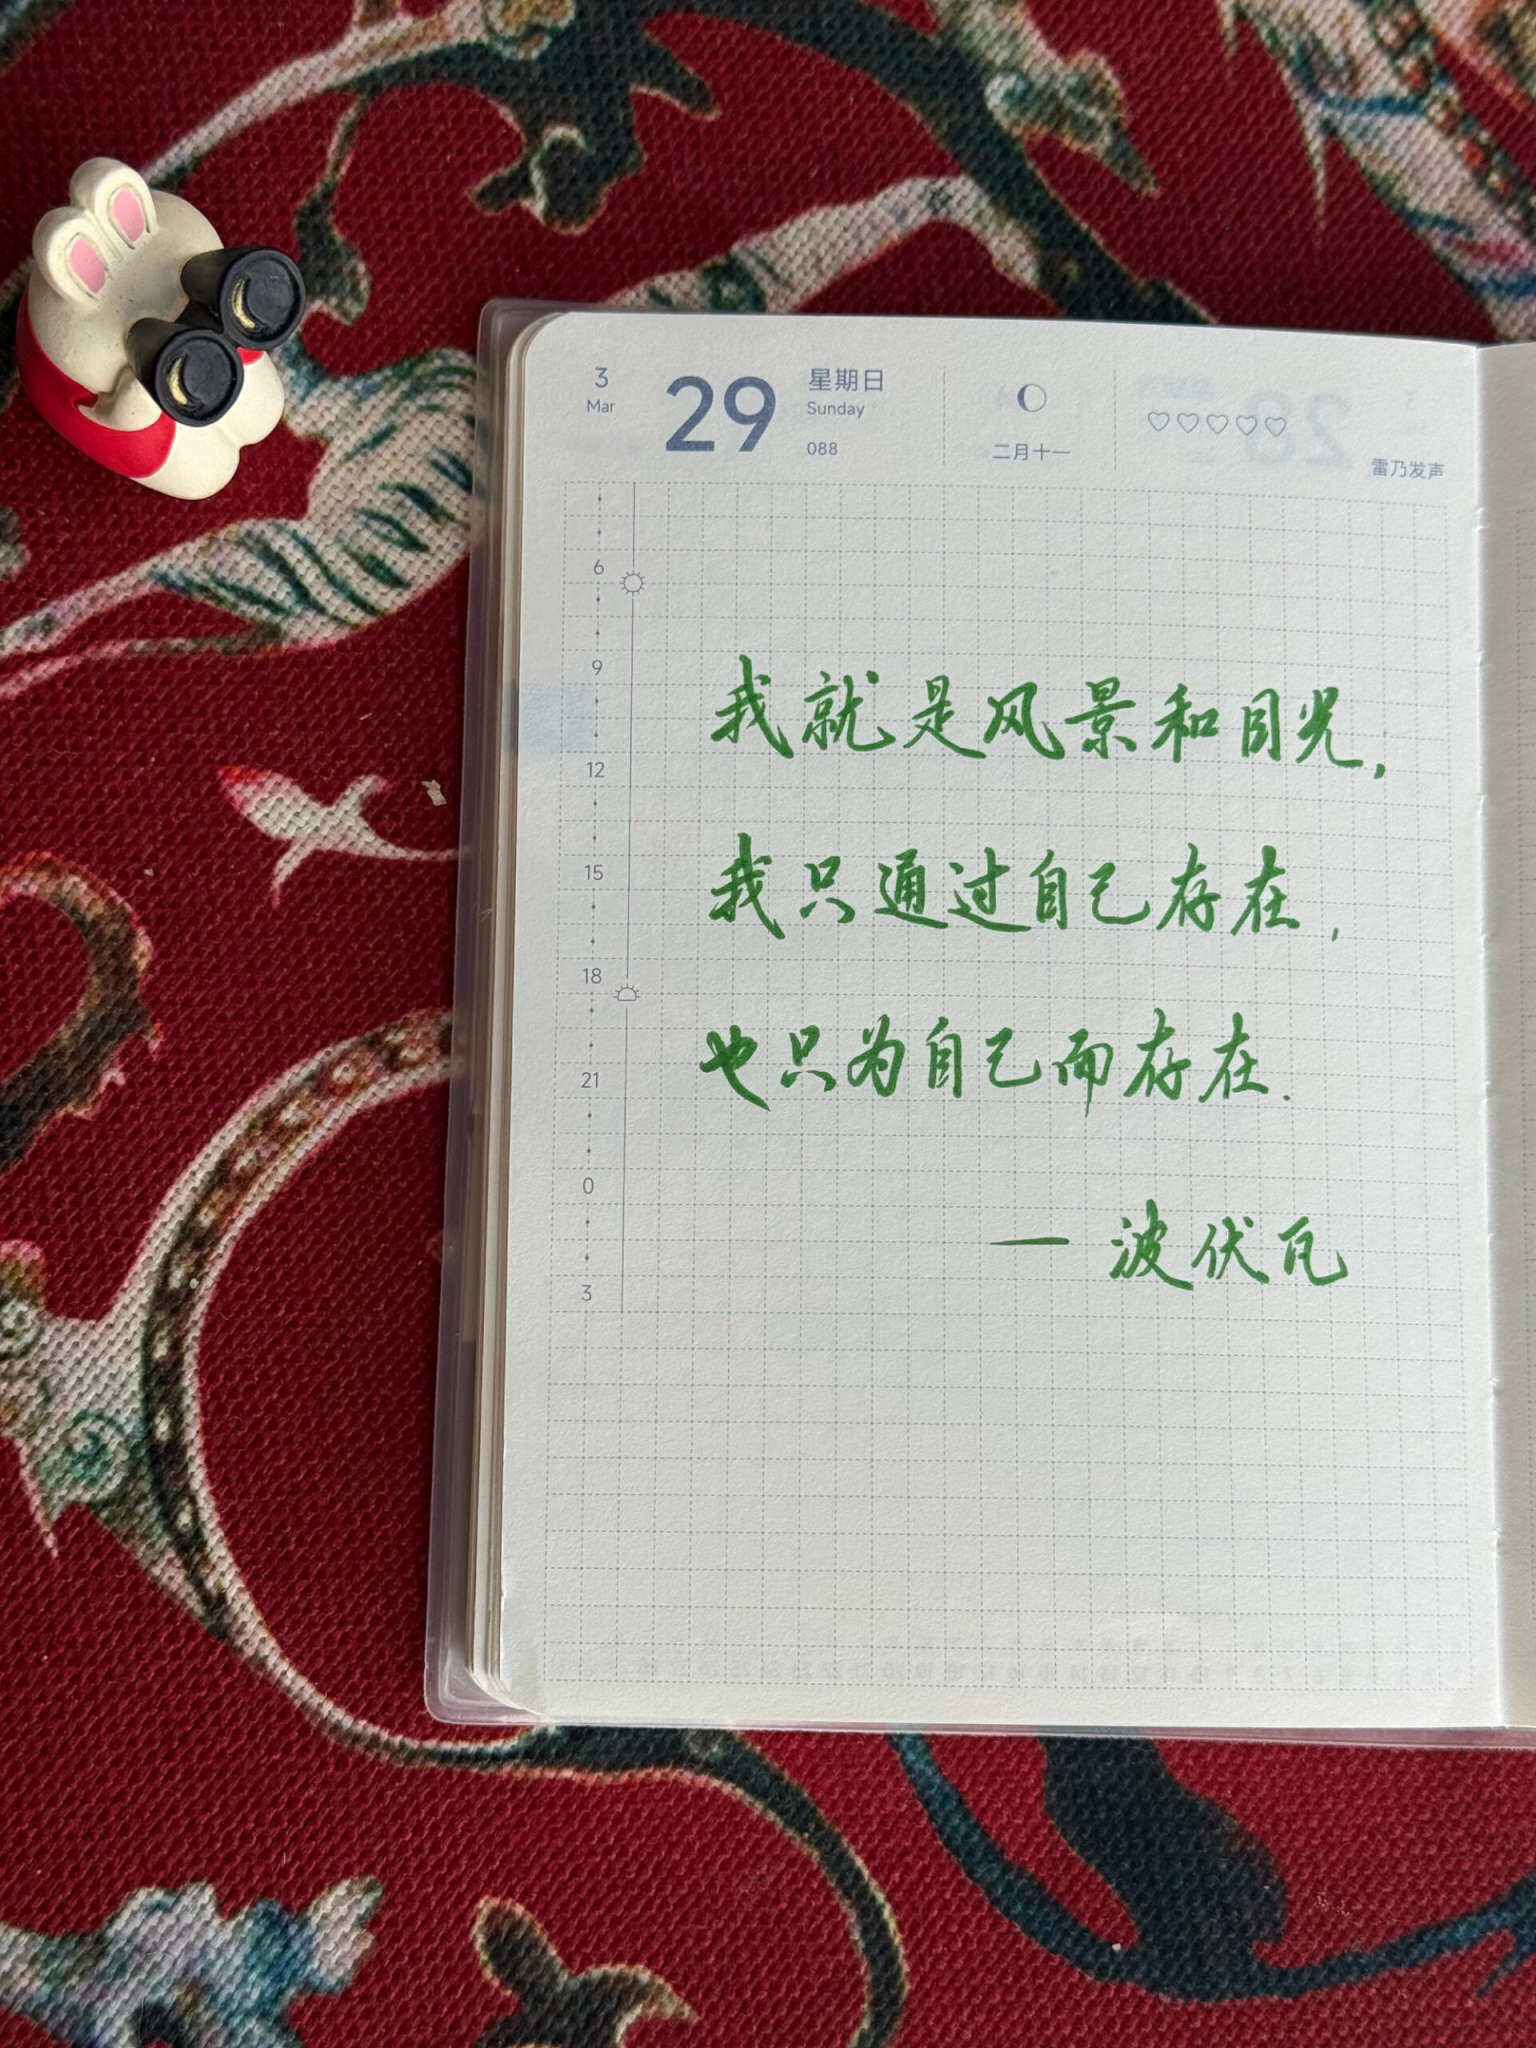 3
Mar
29
星期日
Sunday
088
二月十一
雷乃发声
6
9
12
15
18
21
0
3
我就是风景和目光，
我只通过自己存在，
也只为自己而存在.
— 波伏瓦